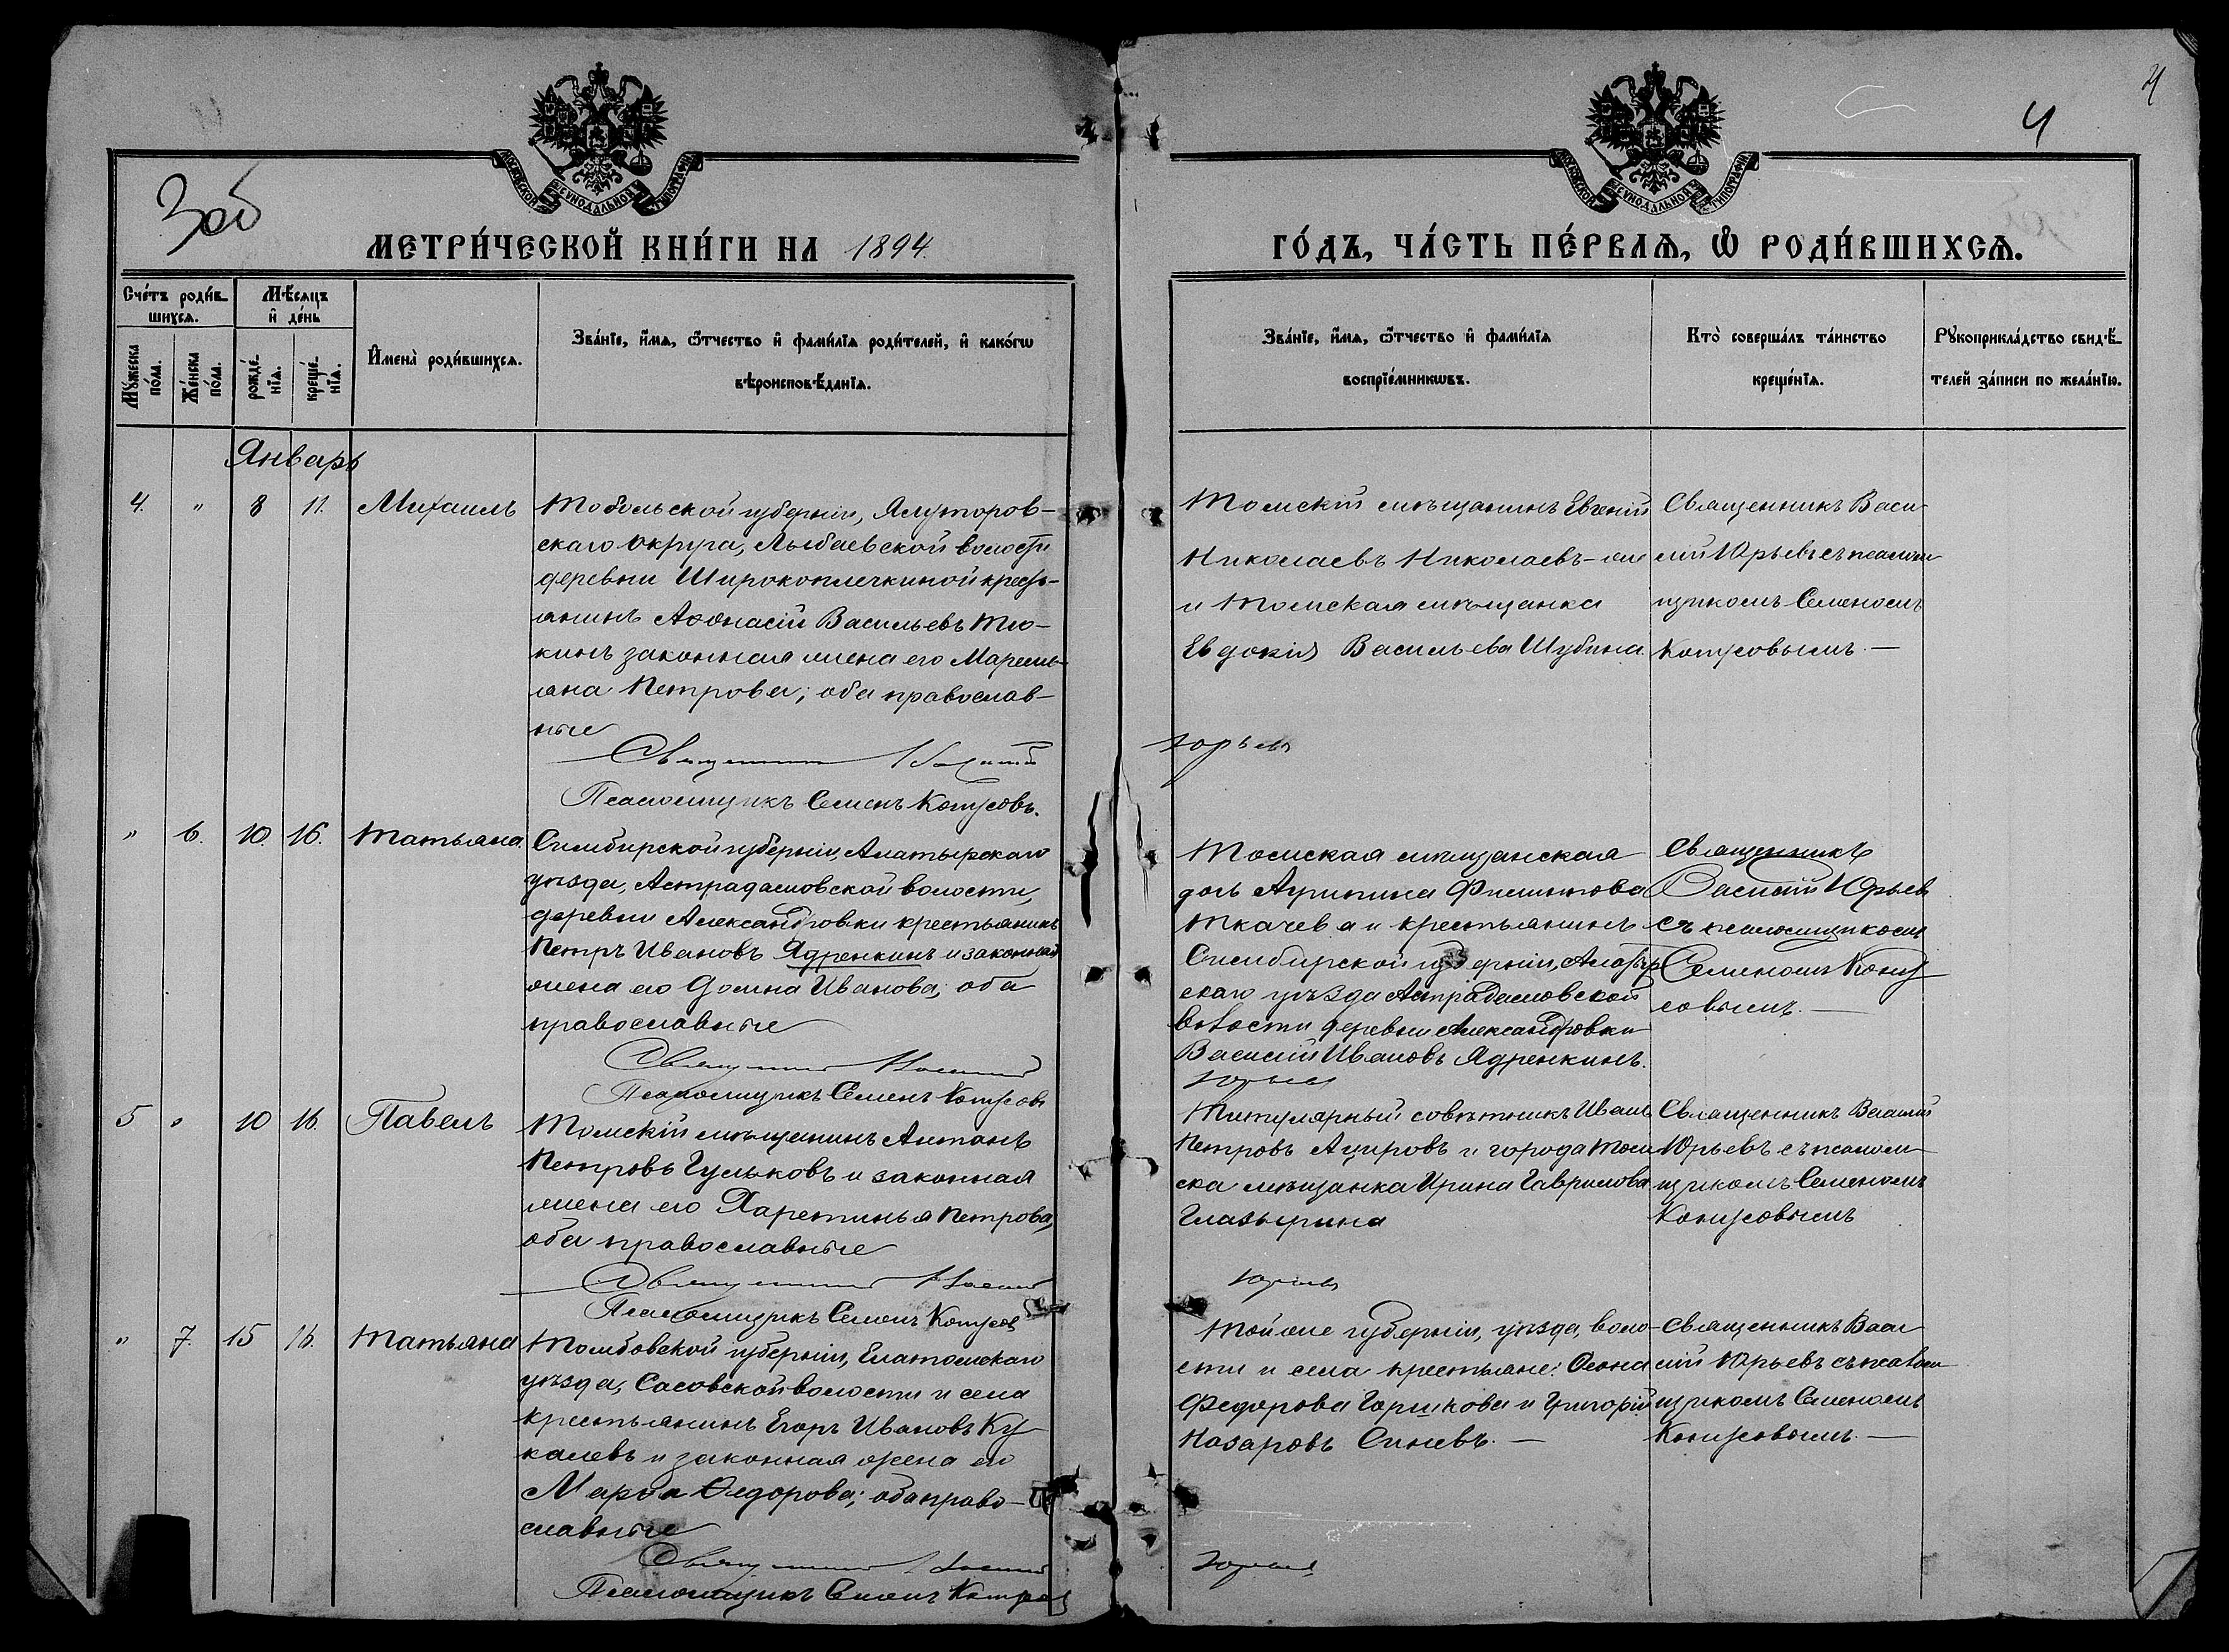 4
4
Зоб
МОСКОВСКОЙ СѴНОДАЛЬНОЙ ТИПОГРАФІИ
МОСКОВСКОЙ СѴНОДАЛЬНОЙ ТИПОГРАФІИ
МЕТРИ́ЧЕСКОЙ КНИ́ГИ НА 1894.
ГО́ДЪ, ЧА́СТЬ ПЕ́РВАѦ, Ѡ РОДИ́ВШИХСѦ.
Сче́тъ роди́в-
шихсѧ.
Мѣ́сяцъ
и҆ де́нь
Мꙋ́жеска
по́ла.
Же́нска
по́ла.
рожде́-
нїѧ.
креще́-
нїѧ.
И҆мена̀ роди́вшихсѧ.
Зва́нїе, и҆́мѧ, ѻ҆́тчество и҆ фами́лїѧ роди́телей, и҆ како́гѡ
вѣроисповѣ́данїѧ.
Зва́нїе, и҆́мѧ, ѻ҆́тчество и҆ фами́лїѧ
воспрїе́мникѡвъ.
Кто̀ соверша́лъ та́инство
креще́нїѧ.
Рꙋкоприкла́дство свидѣ́-
телей за́писи по жела́нїю.
Январь
4. " 8 11. Михаилъ
Тобольской губерніи, Ялуторов-
скаго округа, Лыбаевской волости
деревни Широкоплечкиной кресть-
янинъ Аѳонасій Васильевъ Тю-
кинъ законная жена его Маремь-
яна Петрова; оба православ-
ные
Священникъ Василій
Псаломщикъ Семенъ Конусовъ.
Томскій мѣщанинъ Евгеній
Николаевъ Николаевъ-же
и Томская мѣщанка
Евдокія Васильева Шубина
Юрьевъ
Священникъ Васи-
лій Юрьевъ съ псалом-
щикомъ Семеномъ
Конусовымъ. —
" 6. 10. 16. Татьяна.
Симбирской губерніи, Алатырскаго
уѣзда, Астрадамовской волости,
деревни Александровки крестьянинъ
Петръ Ивановъ Ядренкинъ и законная
жена его Домна Иванова; оба
православные
Священникъ Василій
Псаломщикъ Семенъ Конусовъ
Томская мѣщанская
дочь Агрипина Филиппова
Ткачева и крестьянинъ
Симбирской губерніи, Алатыр
скаго уѣзда Астрадамовской
волости деревни Александровки
Василій Ивановъ Ядренкинъ.
Юрьевъ
Священникъ
Василій Юрьевъ
съ псаломщикомъ
Семеномъ Кону
совымъ. —
5 " 10 16. Павелъ
Томскій мѣщанинъ Антонъ
Петровъ Гульковъ и законная
жена его Харетинья Петрова,
оба православные
Священникъ Василій
Псаломщикъ Семенъ Конусовъ
Титулярный совѣтникъ Иванъ
Петровъ Ацировъ и города Том
ска мѣщанка Ирина Гаврилова
Глазырина
Юрьевъ
Священникъ Василій
Юрьевъ съ псалом-
щикомъ Семеномъ
Конусовымъ
" 7. 15 16. Татьяна
Тамбовской губерніи, Елатомскаго
уѣзда, Сасовской волости и села
крестьянинъ Егоръ Ивановъ Ку-
калевъ и законная жена его
Марѳа Ѳедорова; оба право-
славные
Священникъ Василій
Псаломщикъ Семенъ Конусовъ
Той же губерніи, уѣзда, воло-
сти и села крестьяне:
Федорова Горшкова и Григорій
Назаровъ Синевъ. —
Юрьевъ
Священникъ Васи
лій Юрьевъ съ псалом
щикомъ Семеномъ
Конусовымъ. —